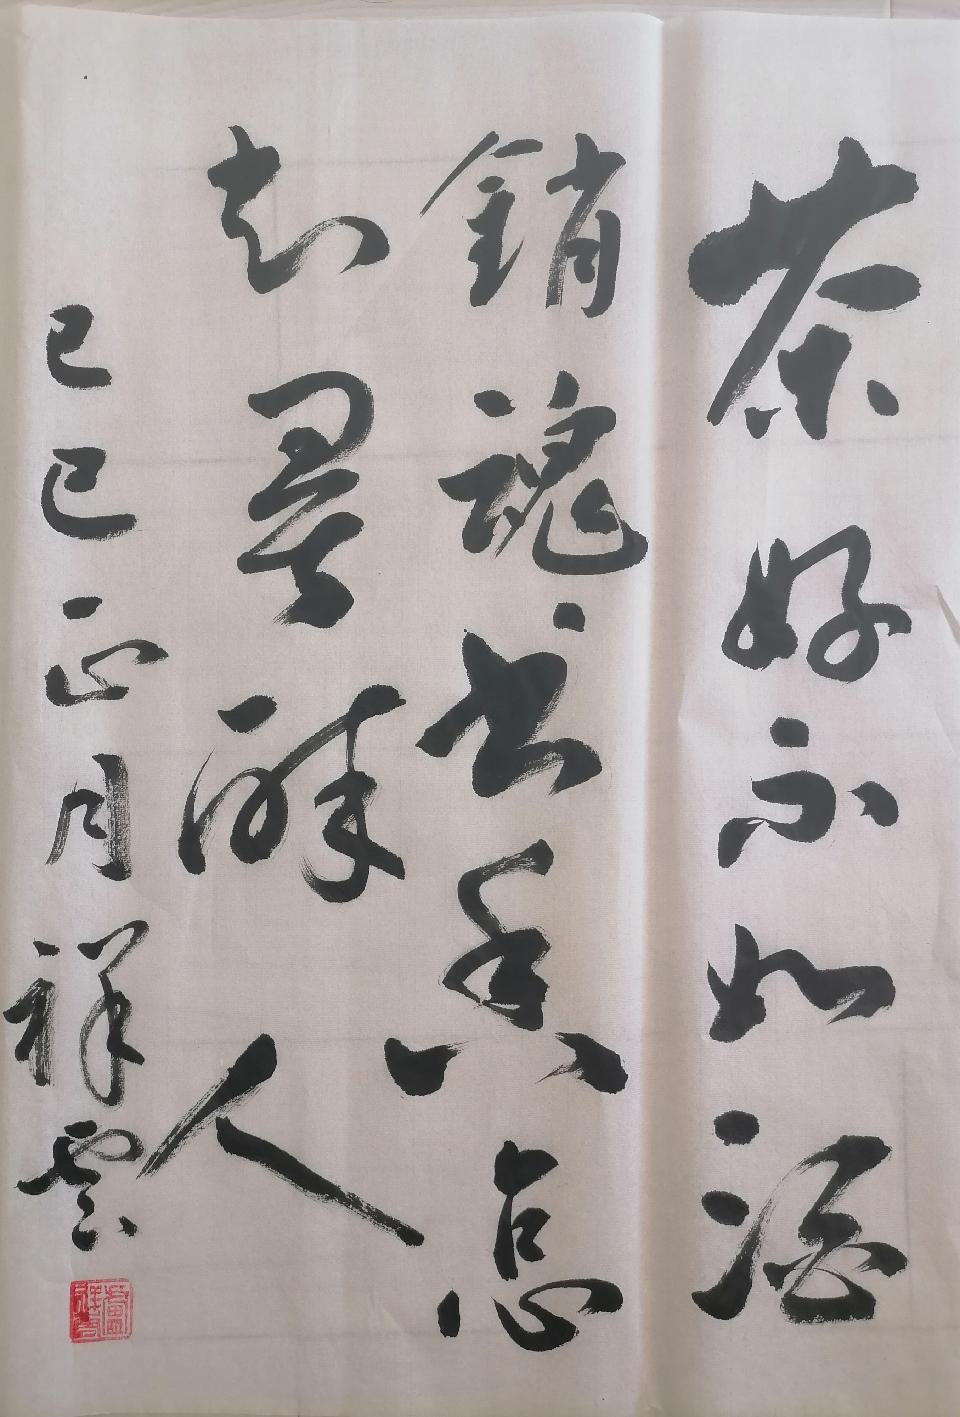 茶好不如酒
銷魂書香忘
却尋醉人
己巳正月祥雲